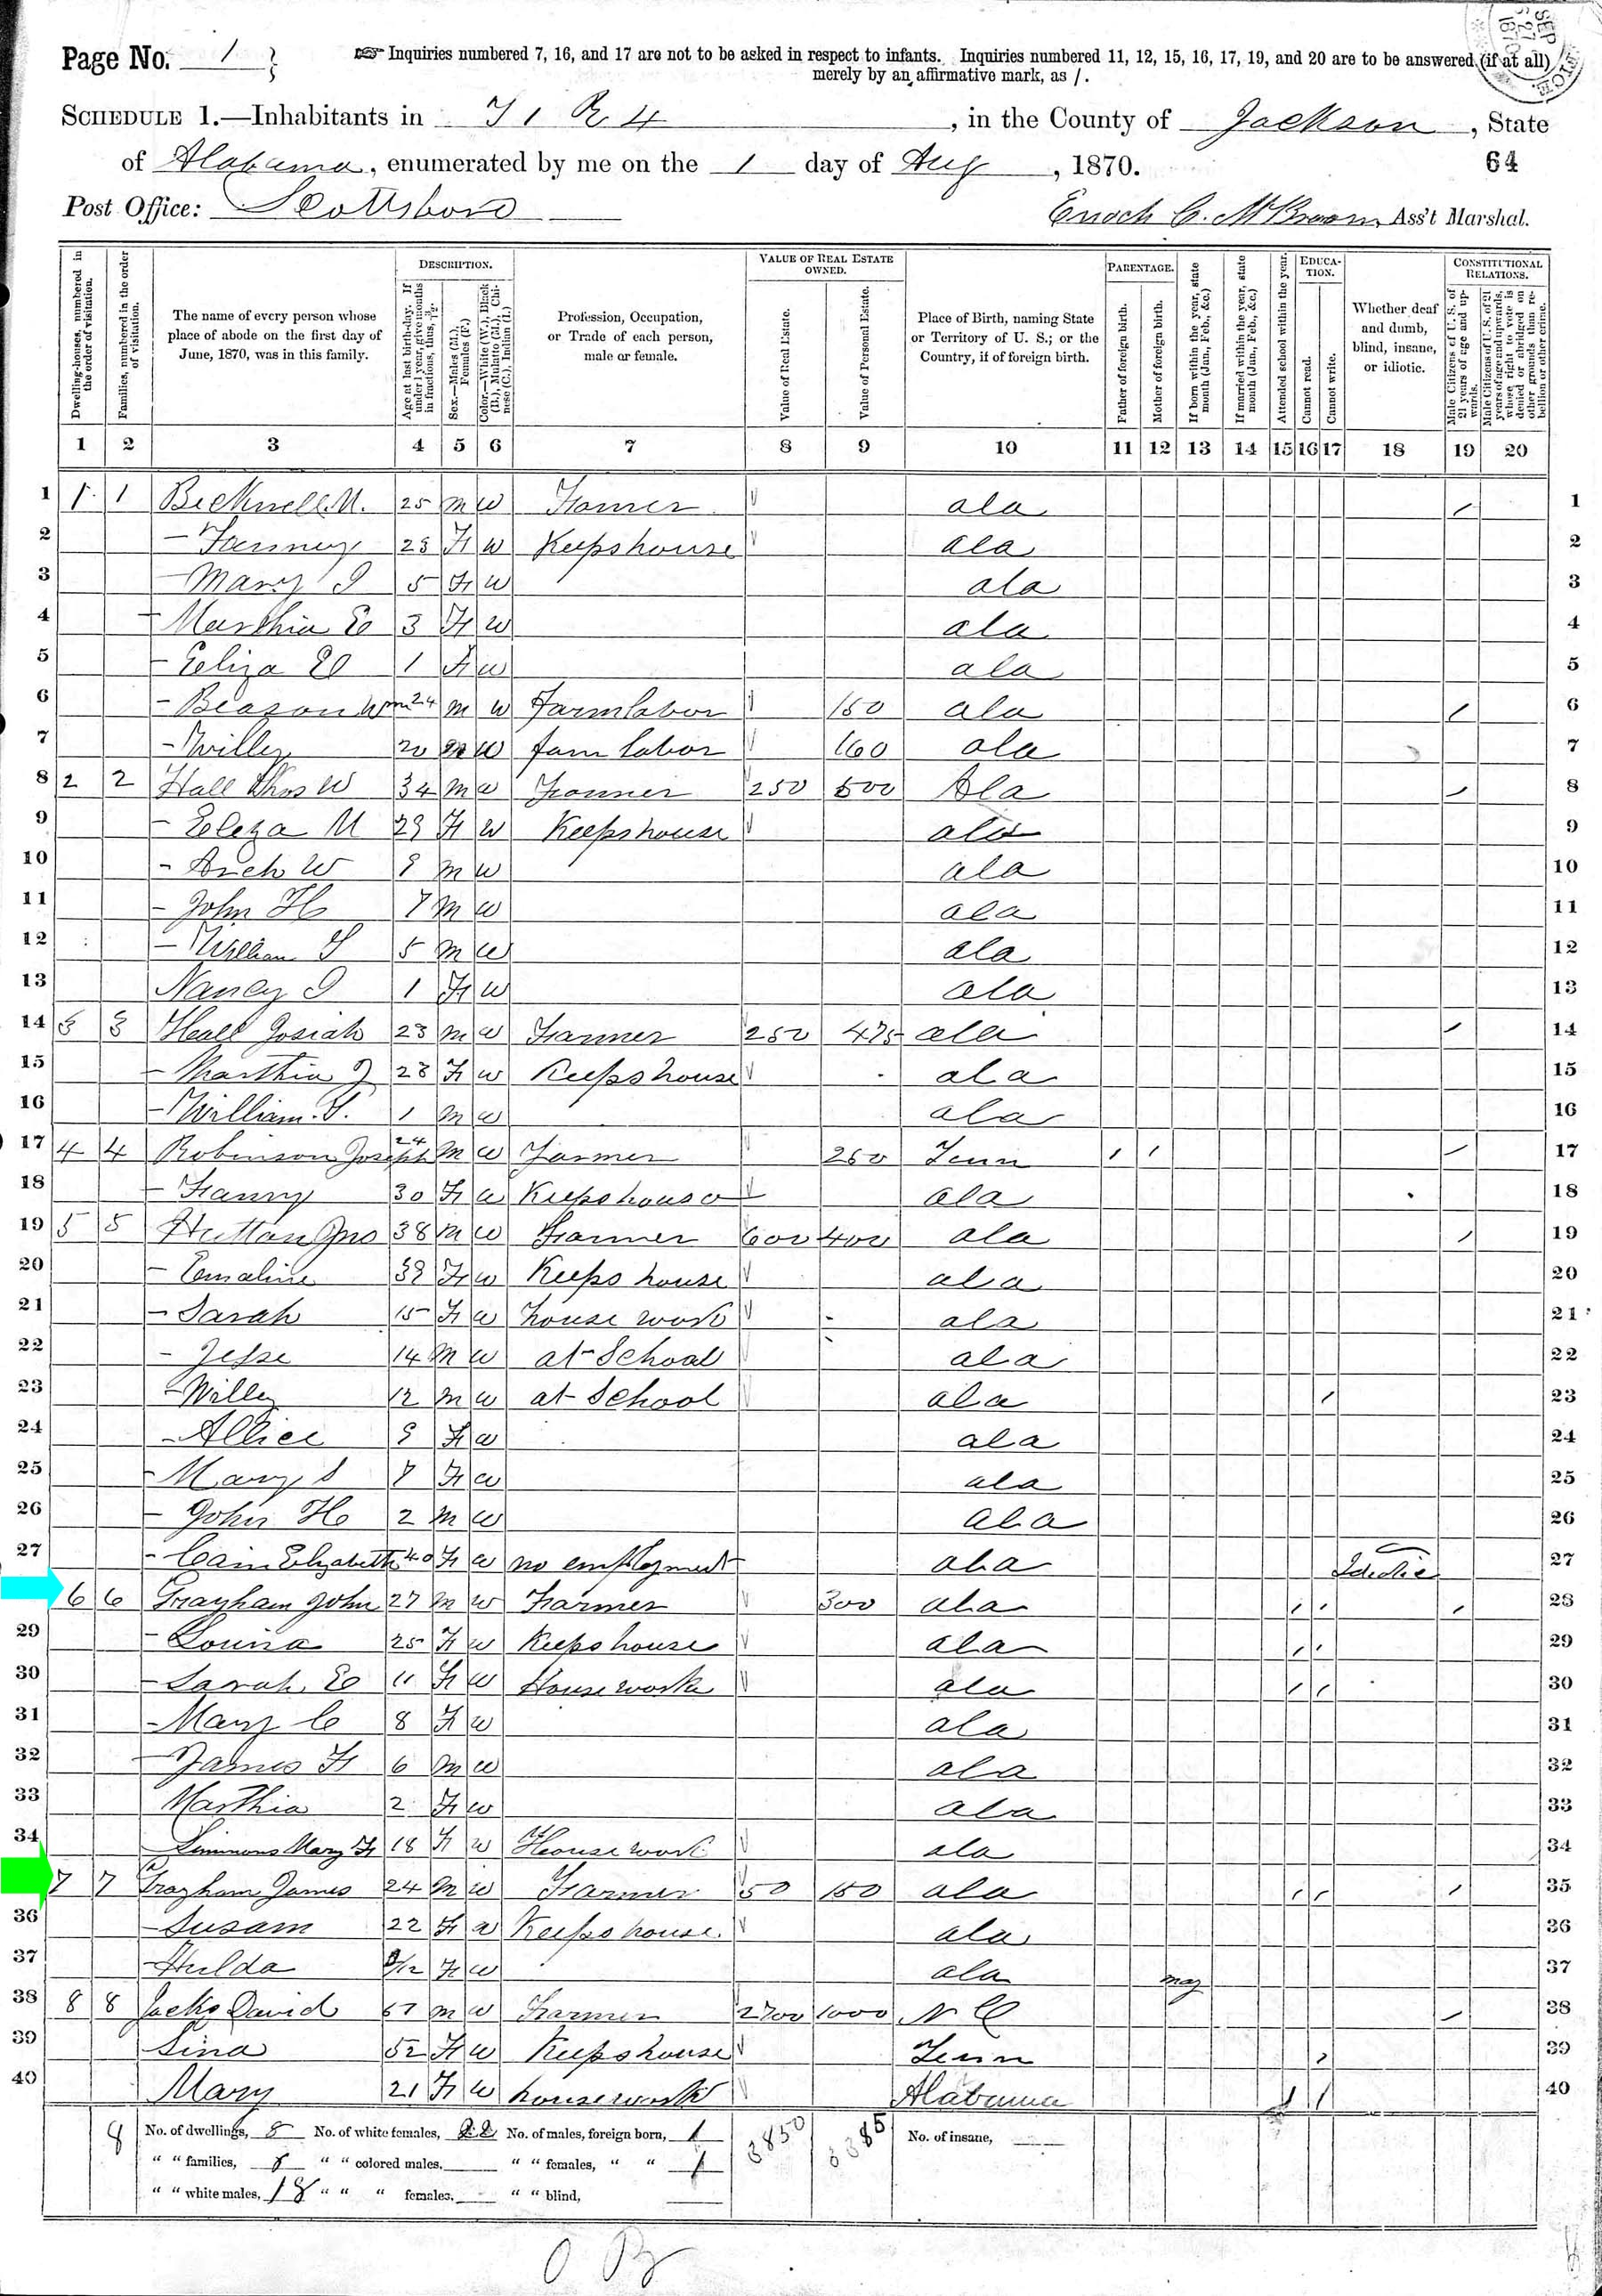 Page No. 1
Inquiries numbered 7, 16, and 17 are not to be asked in respect to infants. Inquiries numbered 11, 12, 15, 16, 17, 19, and 20 are to be answered (if at all)
merely by an affirmative mark, as /.
SCHEDULE 1.—Inhabitants in T 1 R 4, in the County of Jackson, State
of Alabama, enumerated by me on the 1 day of Aug, 1870.
64
Post Office: Scottsboro
Enoch C. McBroom, Ass't Marshal.
Dwelling-houses, numbered in the order of visitation.
Families, numbered in the order of visitation.
The name of every person whose place of abode on the first day of June, 1870, was in this family.
DESCRIPTION.
Age at last birth-day. If under 1 year, give months in fractions, thus, 3/12.
Sex.—Males (M.), Females (F.)
Color.—White (W.), Black (B.), Mulatto (M.), Chinese (C.), Indian (I.)
Profession, Occupation, or Trade of each person, male or female.
VALUE OF REAL ESTATE OWNED.
Value of Real Estate.
Value of Personal Estate.
Place of Birth, naming State or Territory of U. S.; or the Country, if of foreign birth.
PARENTAGE.
Father of foreign birth.
Mother of foreign birth.
If born within the year, state month (Jan., Feb., &c.)
If married within the year, state month (Jan., Feb., &c.)
Attended school within the year.
EDUCATION.
Cannot read.
Cannot write.
Whether deaf and dumb, blind, insane, or idiotic.
CONSTITUTIONAL RELATIONS.
Male Citizens of U. S. of 21 years of age and upwards.
Male Citizens of U. S. of 21 years of age and upwards, whose right to vote is denied or abridged on other grounds than rebellion or other crime.
1 2 3 4 5 6 7 8 9 10 11 12 13 14 15 16 17 18 19 20
1 1 1 Bicknell M. 25 M W Farmer ala / 1
2 — Fanney 23 F W Keeps house ala 2
3 — Mary J 5 F W ala 3
4 — Marthia E 3 F W ala 4
5 — Eeliza E 1 F W ala 5
6 — Beason Wm 24 M W Farm labor 150 ala / 6
7 — Willey 20 M W farm labor 160 ala 7
8 2 2 Hall Thos W 34 M W Farmer 250 500 Ala / 8
9 — Eleza M 29 F W Keeps house ala 9
10 — Arch W 9 M W ala 10
11 — John H 7 M W ala 11
12 — William S 5 M W ala 12
13 Nancy J 1 F W ala 13
14 3 3 Hall Josiah 23 M W Farmer 250 475 ala / 14
15 — Marthia J 23 F W Keeps house ala 15
16 — William S. 1 M W ala 16
17 4 4 Robinson Joseph 24 M W Farmer 250 Tenn / / / 17
18 — Fanny 30 F W Keeps house ala 18
19 5 5 Hutton Jno 38 M W Farmer 600 400 ala / 19
20 — Emaline 39 F W Keeps house ala 20
21 — Sarah 15 F W house work ala 21
22 — Jesse 14 M W at School ala 22
23 — Willey 12 M W at School ala / 23
24 — Allice 9 F W ala 24
25 — Mary S 7 F W ala 25
26 — John H 2 M W ala 26
27 — Cain Elizabeth 40 F W no employment ala Idiotic 27
6 6 Grayham John 27 M W Farmer 300 ala / / / 28
29 — Louisa 25 F W Keeps house ala / / 29
30 — Sarah E 11 F W House work ala / / 30
31 — Mary C 8 F W ala 31
32 — James F 6 M W ala 32
33 Marthia 2 F W ala 33
34 Simmons Mary F 18 F W House work ala 34
7 7 Grayham James 24 M W Farmer 50 150 ala / / / 35
36 — Susam 22 F W Keeps house ala 36
37 — Hulda F W ala may 37
38 8 8 Jacks David 67 M W Farmer 2700 1000 N C / 38
39 Sina 52 F W Keeps house Tenn / 39
40 Mary 21 F W house work Alabama / / 40
8 No. of dwellings, 8 No. of white females, 22 No. of males, foreign born, 1 3850 3385 No. of insane,
" " families, 8 " " colored males, " " females, " " 1
" " white males, 18 " " " females, " " blind,